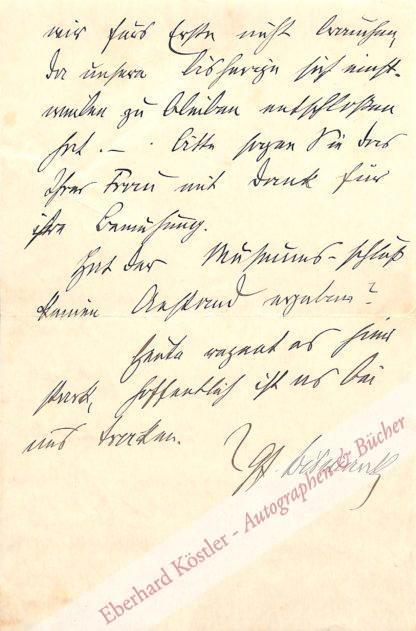 wir fürs Erste nicht brauchen,
da unsere bisherige sich einst-
weilen zu bleiben entschloßen
hat. — . Bitte sagen Sie das
Ihrer Frau mit Dank für
ihre Bemühung.
Hat der Museums-schluß
keinen Anstand ergeben?
Heute regnet es hier
stark, hoffentlich ist es bei
uns trocken.
Bismarck
Eberhard Köstler - Autographen & Bücher